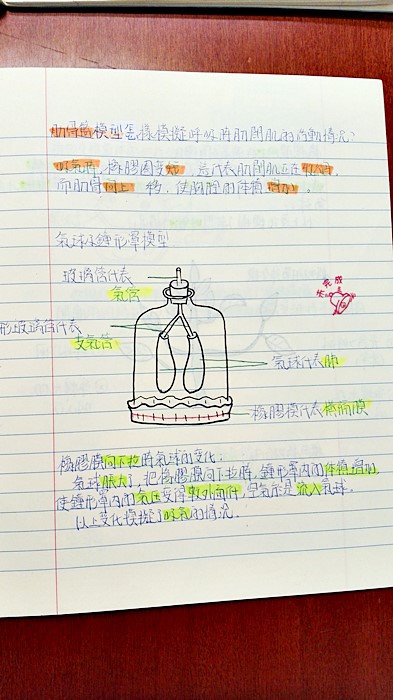 肋骨籠模型怎樣模擬呼吸時肋間肌的活動情況?
吸氣時,橡膠圈變短,這代表肋間肌正在收縮,
而肋骨向上移,使胸腔的體積增加。
氣球及鐘形罩模型
玻璃管代表
氣管
形玻璃管代表
支氣管
氣球代表肺
橡膠膜代表橫膈膜
完成
橡膠膜向下拉時氣球的變化:
氣球脹大了,把橡膠膜向下拉時,鐘形罩內的體積增加,
使鐘形罩內的氣壓變得較外面低,空氣於是流入氣球。
以上變化模擬了吸氣的情況。